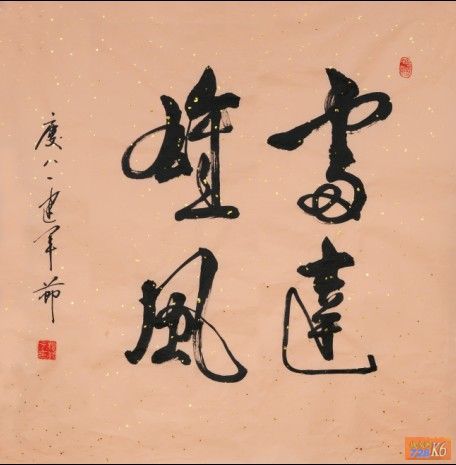 雷達
雄風
慶八一建軍節
K6